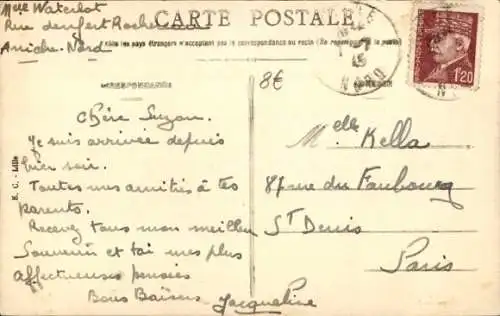 Mlle Waterlot
Rue denfert Rochereau
Aniche. Nord
CARTE POSTALE
Tous les pays étrangers n'acceptent pas la correspondance au recto (Se renseigner à la poste).
CORRESPONDANCE
8€
NORD
1F20
E. C. - Lille
Chère Suzon.
Je suis arrivée depuis
hier soir.
Toutes mes amitiés à tes
parents.
Recevez tous mon meilleur
Souvenir et toi mes plus
affectueuses pensées
Bons Baisers Jacqueline
Melle Kella
87 rue du Faubourg
St Denis
Paris